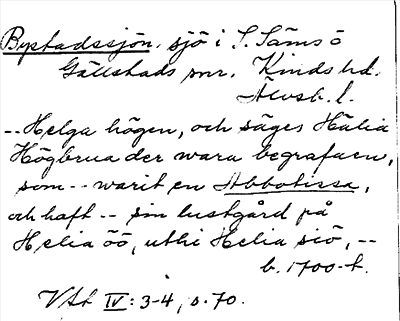 Bystadssjön, sjö i S. Säms o
Gällstads snr. Kinds hd.
Älvsb. l.
-- Helga högen, och säges Hälia
Högbrua der wara begrafuen,
som -- warit en Abbotissa,
och haft -- sin lustgård på
Helia öö, uthi Helia siö, --
b. 1700-t.
VAt IV: 3-4, s. 70.